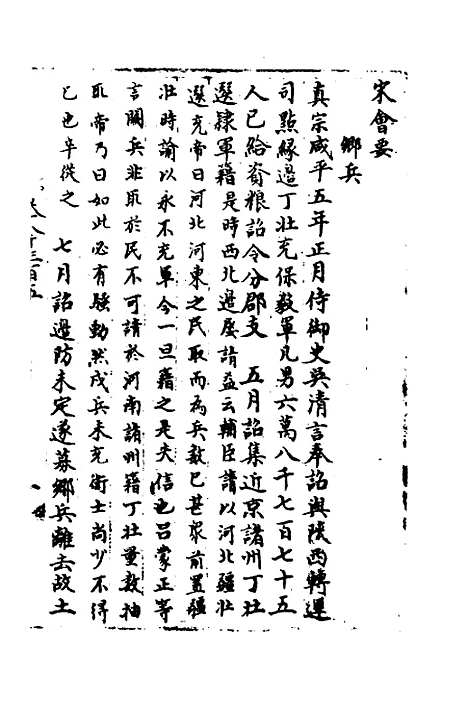 宋會要
鄉兵
真宗咸平五年正月侍御史吳清言奉詔與陜西轉運
司點緣邊丁壯充保毅軍凡男六萬八千七百七十五
人已給資粮詔令分郡支　五月詔集近京諸州丁壯
選隸軍籍是時西北邊屢請益云輔臣請以河北疆壯
選充帝曰河北河東之民取而為兵數已甚衆前置疆
壯時諭以永不充軍今一旦籍之是失信也呂蒙正等
言闕兵非取於民不可請於河南諸州籍丁壯量數抽
取帝乃曰如此必有騷動然戍兵未充衛士尚少不得
已也辛從之　七月詔邊防未定遂募鄉兵離去故土
卷八千三百五